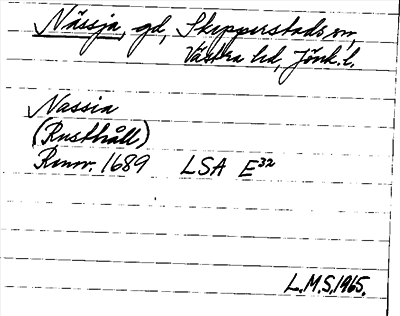 Nässja, gd, Skepperstads sn,
Västra hd, Jönk. l.
Nassia
(Rusthåll)
Rannr. 1689 LSA E32
L.M.S. 1965.